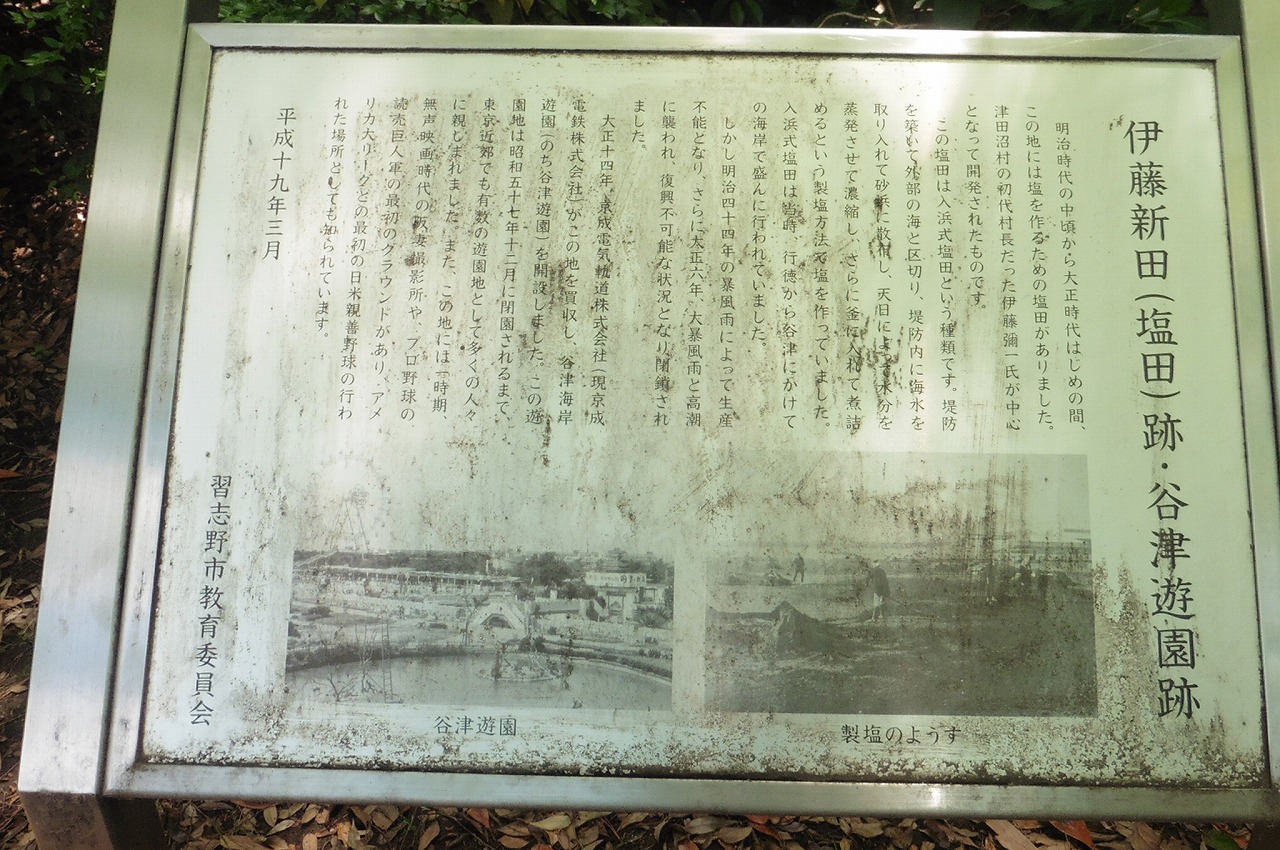 伊藤新田(塩田)跡・谷津遊園跡
明治時代の中頃から大正時代はじめの間、
この地には塩を作るための塩田がありました。
津田沼村の初代村長だった伊藤彌一氏が中心
となって開発されたものです。
この塩田は入浜式塩田という種類です。堤防
を築いて外部の海と区切り、堤防内に海水を
取り入れて砂浜に散布し、天日によって水分を
蒸発させて濃縮し、さらに釜に入れて煮詰
めるという製塩方法で塩を作っていました。
入浜式塩田は当時、行徳から谷津にかけて
の海岸で盛んに行われていました。
しかし明治四十四年の暴風雨によって生産
不能となり、さらに大正六年、大暴風雨と高潮
に襲われ、復興不可能な状況となり閉鎖され
ました。
大正十四年、京成電気軌道株式会社(現京成
電鉄株式会社)がこの地を買収し、谷津海岸
遊園(のち谷津遊園)を開設しました。この遊
園地は昭和五十七年十二月に閉園されるまで、
東京近郊でも有数の遊園地として多くの人々
に親しまれました。また、この地には一時期、
無声映画時代の阪妻撮影所や、プロ野球の
読売巨人軍の最初のグラウンドがあり、アメ
リカ大リーグとの最初の日米親善野球の行わ
れた場所としても知られています。
平成十九年三月
習志野市教育委員会
製塩のようす
谷津遊園